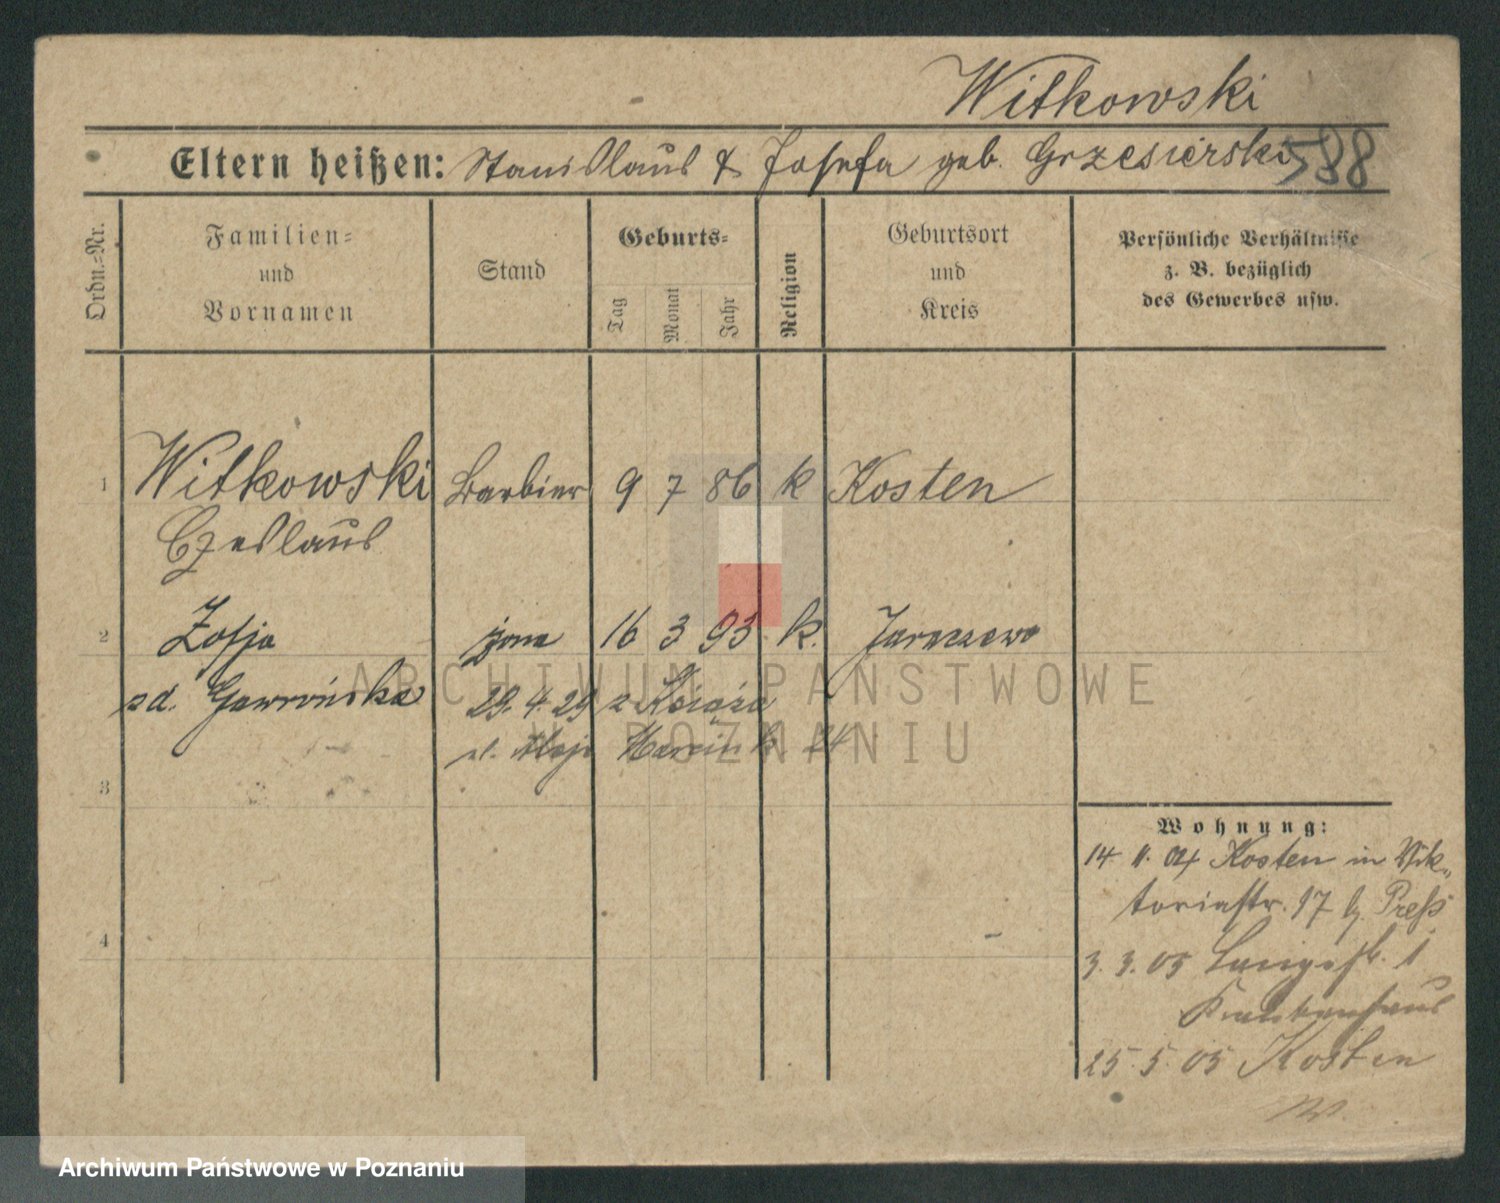 Witkowski
Eltern heißen: Stanislaus & Josefa geb. Grzesierski 588
Ordn.-Nr.
Familien- und Vornamen
Stand
Geburts-
Tag
Monat
Jahr
Religion
Geburtsort und Kreis
Persönliche Verhältnisse
z. B. bezüglich
des Gewerbes usw.
1 Witkowski Barbier 9 7 86 k Kosten
Czeslaus
2 Zofja żona 16 3 93 k. Jaraczewo
zd. Gawrońska 29.4.29 z Książa
ul. Aleje Marcink. 24
3
4
Wohnung:
14 11. 04 Kosten in Vik-
toriastr. 17 b. Preß
3. 3. 05 Langestr. 1
Krankenhaus
25. 5. 05 Kosten
ARCHIWUM PAŃSTWOWE
W POZNANIU
Archiwum Państwowe w Poznaniu